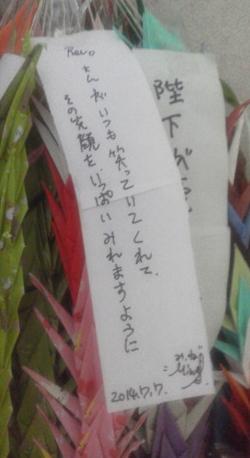 Rev.
さんがいつも笑っていてくれて、
その笑顔をいっぱいみれますように
2014.7.7.
陛下が